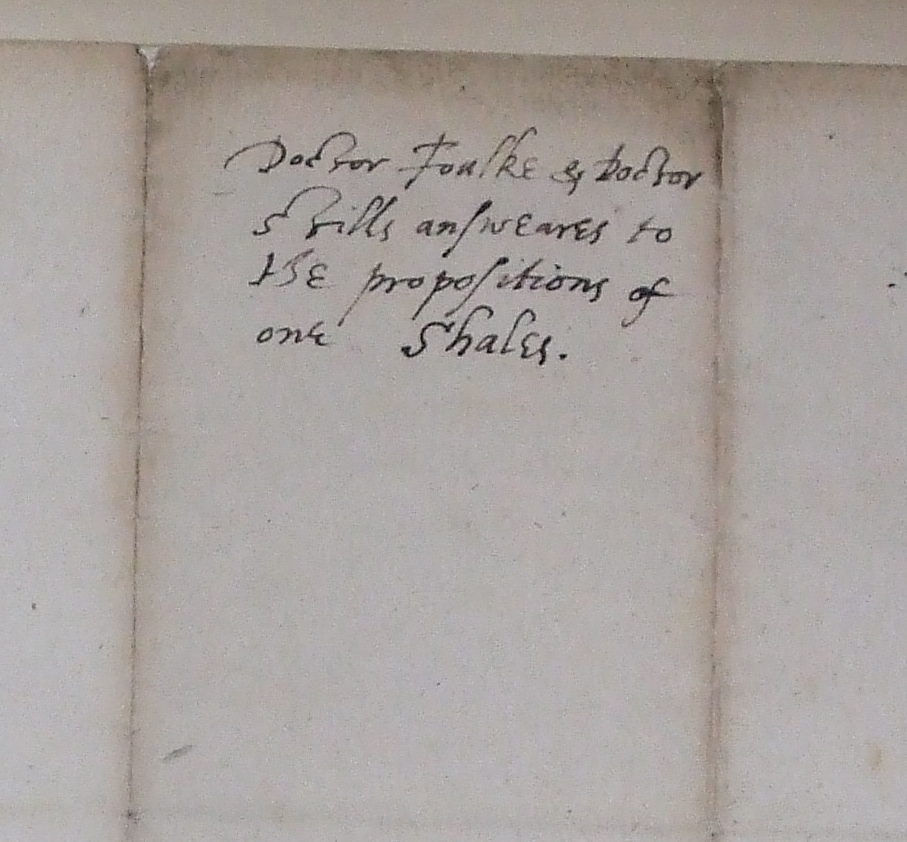 Doctor Foulke & Doctor
Stills answeares to
the propositions of
one Shales.